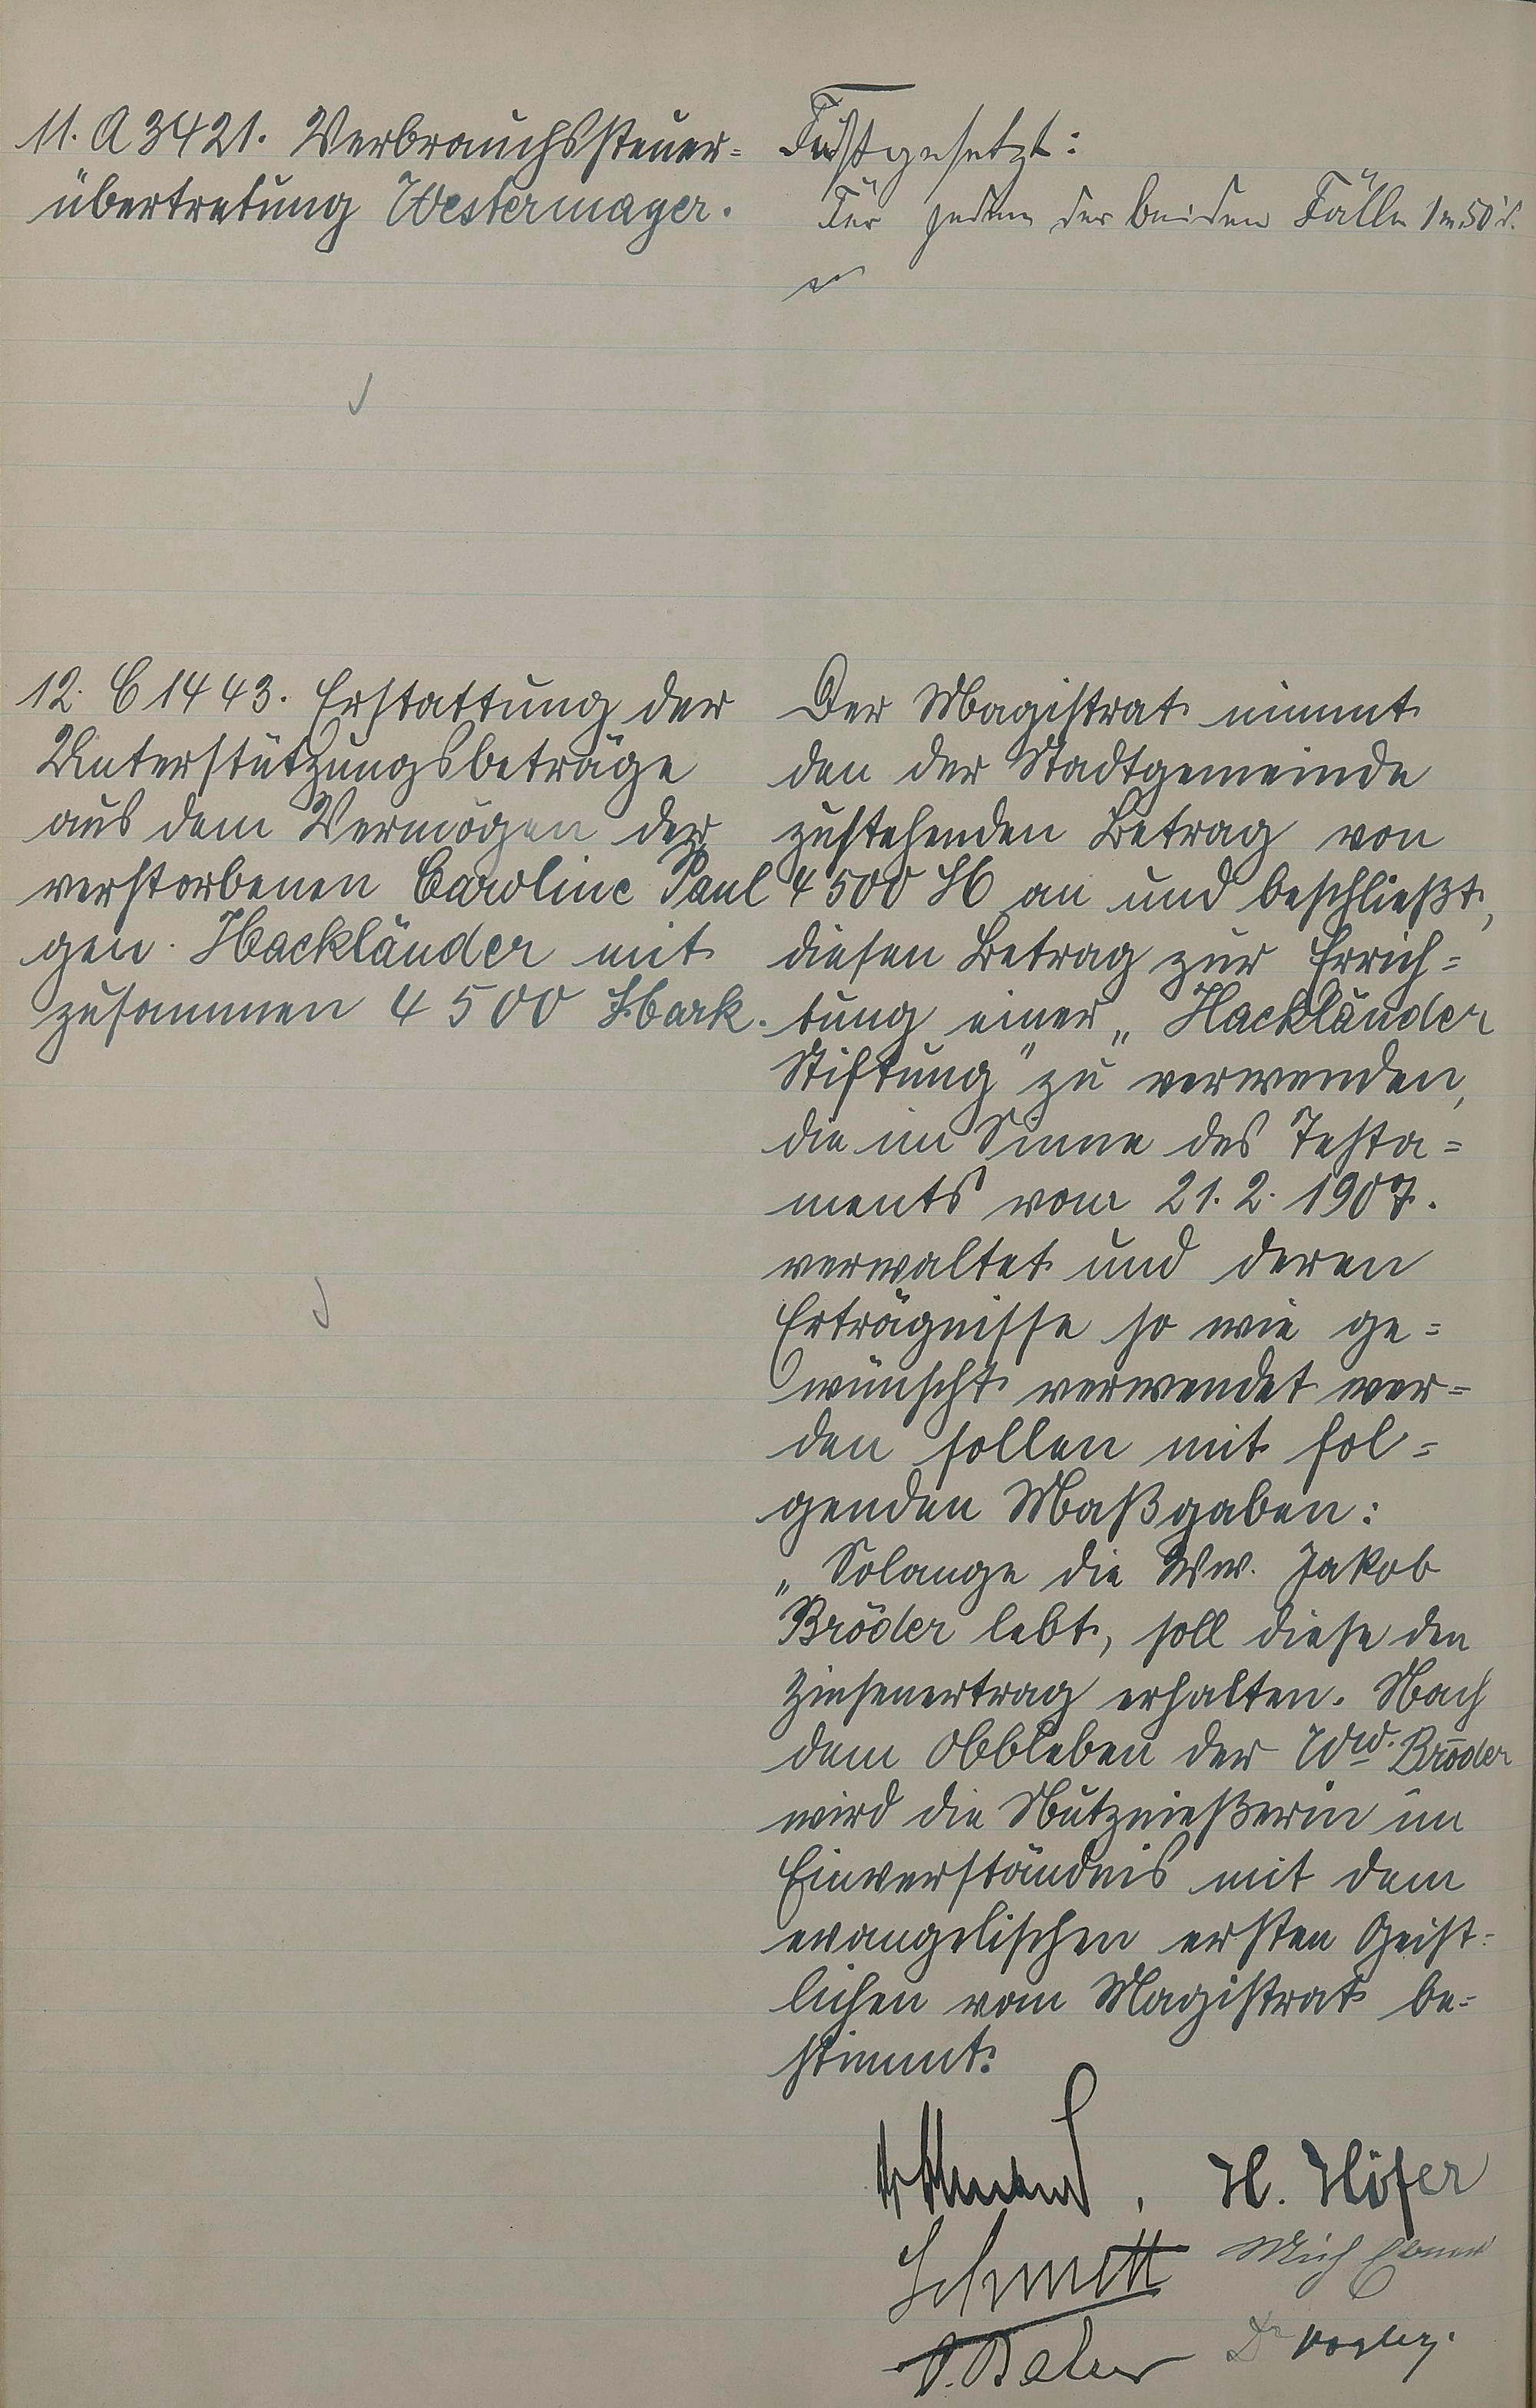 11. A 3421. Verbrauchssteuer=
übertretung Westermayer.
Festgesetzt:
Für jeden der beiden Fälle 1 m 50 d.
12. C 1443. Erstattung der
Unterstützungsbeträge
aus dem Vermögen der
verstorbenen Caroline Paul
gen. Hackländer mit
zusammen 4500 Mark.
Der Magistrat nimmt
den der Stadtgemeinde
zustehenden Betrag von
4500 M an und beschließt,
diesen Betrag zur Errich=
tung einer „Hackländer
Stiftung" zu verwenden,
die im Sinne des Testa=
ments vom 21. 2. 1907.
verwaltet und deren
Erträgnisse so wie ge=
wünscht verwendet wer=
den sollen mit fol=
genden Maßgaben:
„Solange die Ww. Jakob
Bröder lebt, soll diese den
Zinsenertrag erhalten. Nach
dem Abbleben der Ww. Bröder
wird die Nutznießerin im
Einverständnis mit dem
evangelischen ersten Geist=
lichen vom Magistrat be=
stimmt.
H. Höfer
Schmitt